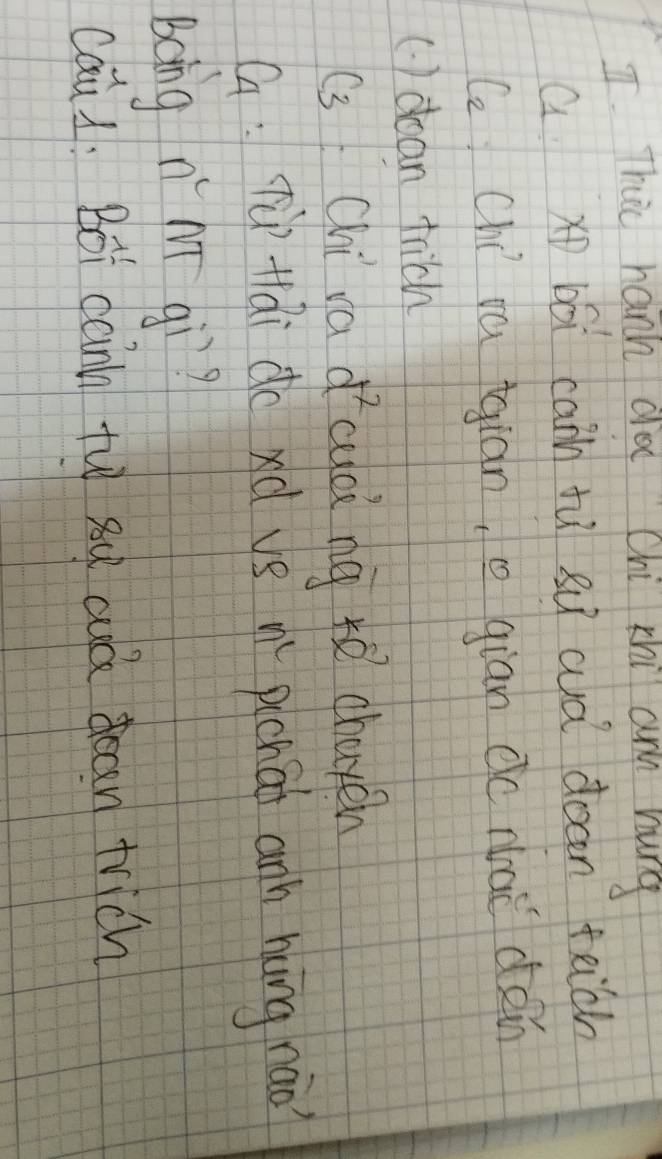 II. Thực hành đọc Chí khí anh hùng
C1: XĐ bối cảnh tự sự của đoạn trích
C2: Chỉ ra tgian, o gian đc nhắc đến
(.) đoạn trích
C3: Chỉ ra đ² của ng kể chuyện
C4: Từ Hải đc xd vs n~ pichất anh hùng nào?
Bằng n~ NT gì?
Câu 1: Bối cảnh tự sự của đoạn trích